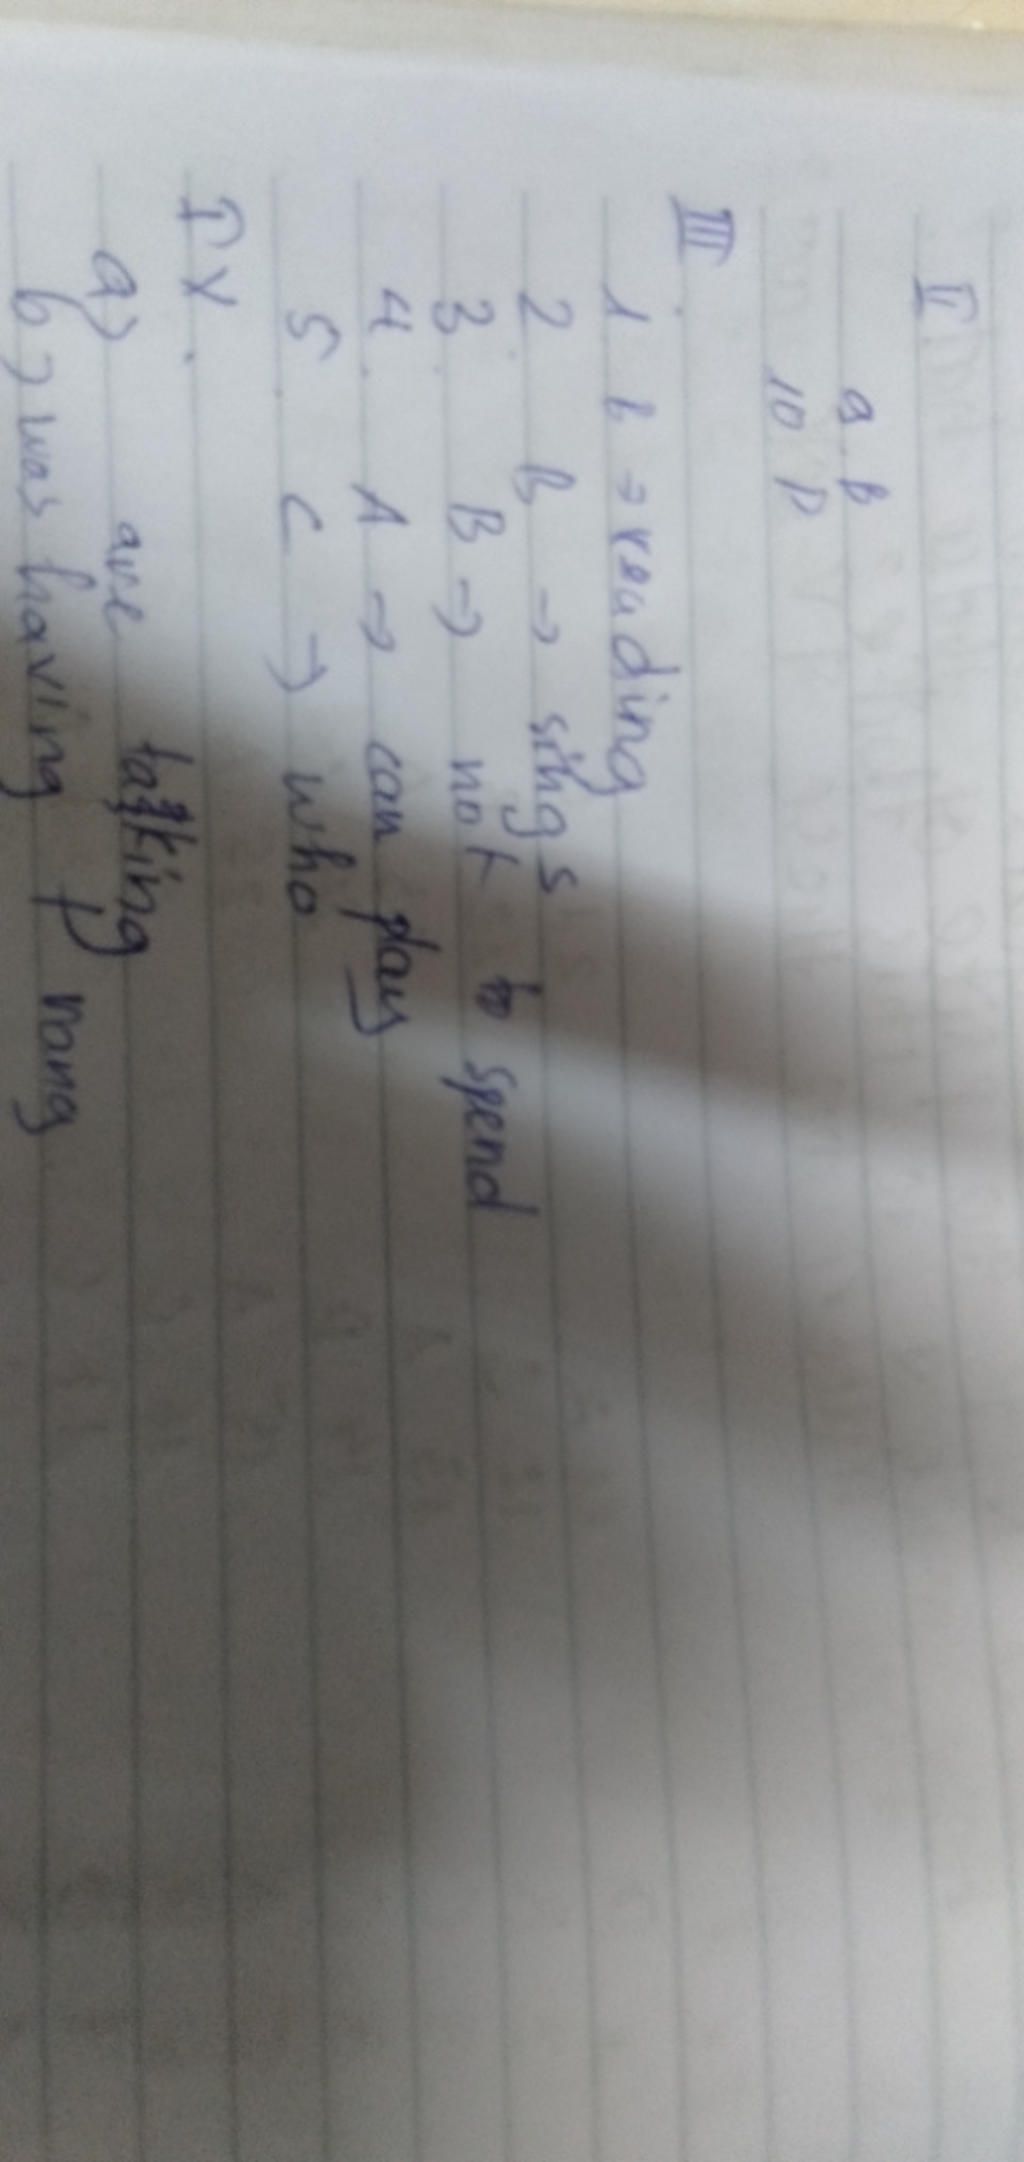 II
a. B
10 P
III
1. b → reading
2. B → sings
3. B → not to spend
4. A → can play
5. C → who
IV.
a) are talking
b) was having